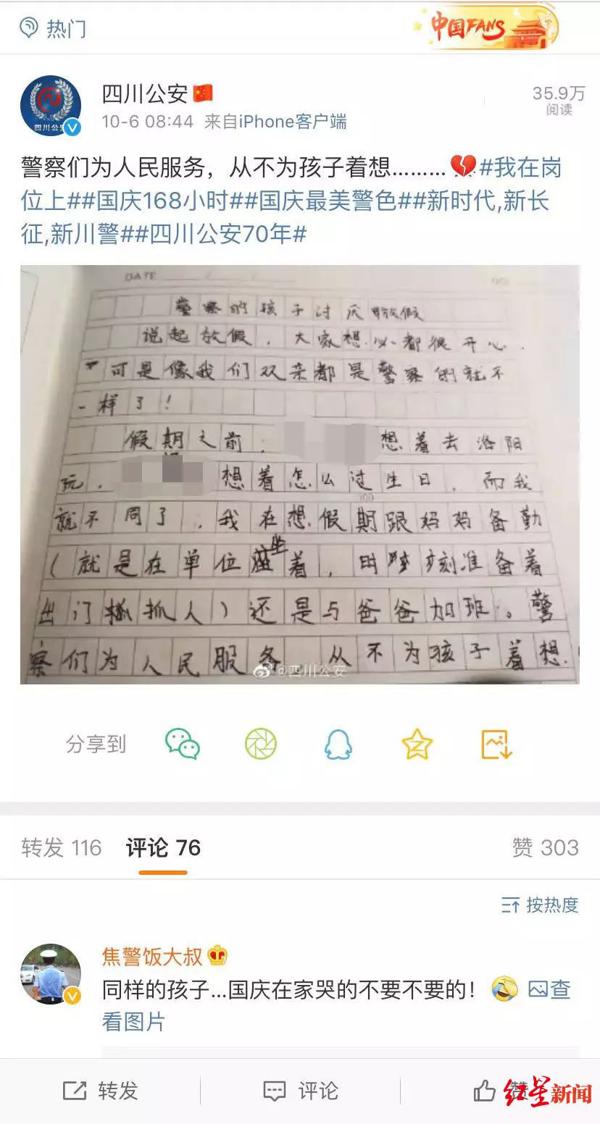 热门
中国FANS
四川公安
35.9万
阅读
10-6 08:44 来自iPhone客户端
警察们为人民服务，从不为孩子着想………💔#我在岗
位上##国庆168小时##国庆最美警色##新时代,新长
征,新川警##四川公安70年#
DATE
警察的孩子讨厌放假
说起放假，大家想必都很开心，
可是像我们双亲都是警察的就不
一样了！
假期之前，想着去洛阳
玩，想着怎么过生日，而我
就不同了，我在想假期跟妈妈备勤
（就是在单位坐着，时刻准备着
出门抓人）还是与爸爸加班。警
察们为人民服务，从不为孩子着想。
@四川公安
分享到
转发 116 评论 76 赞 303
按热度
焦警饭大叔
同样的孩子...国庆在家哭的不要不要的！🤣查
看图片
转发 评论 赞
红星新闻